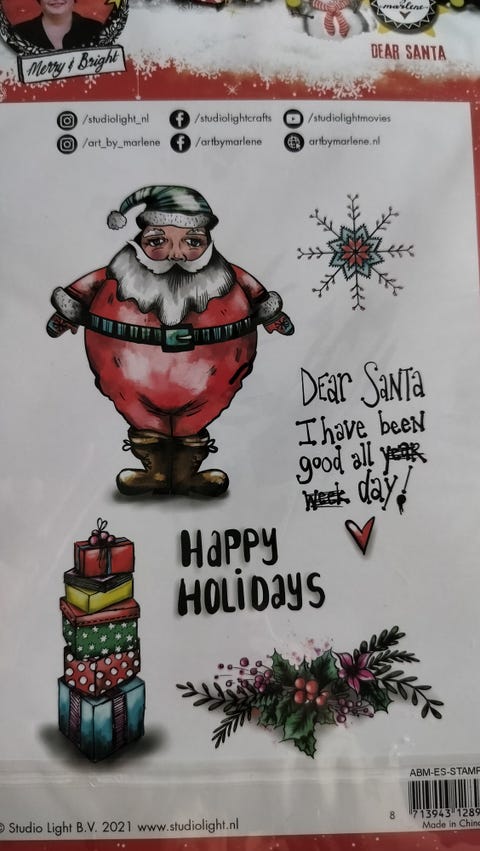 Merry & Bright
by marlene
DEAR SANTA
/studiolight_nl /studiolightcrafts /studiolightmovies
/art_by_marlene /artbymarlene artbymarlene.nl
DEAR SANTA
I have been
good all YEAR
WEEK day!
HAPPY
HOLIDAYS
ABM-ES-STAMP
8 713943 1289
© Studio Light B.V. 2021 www.studiolight.nl
Made in China